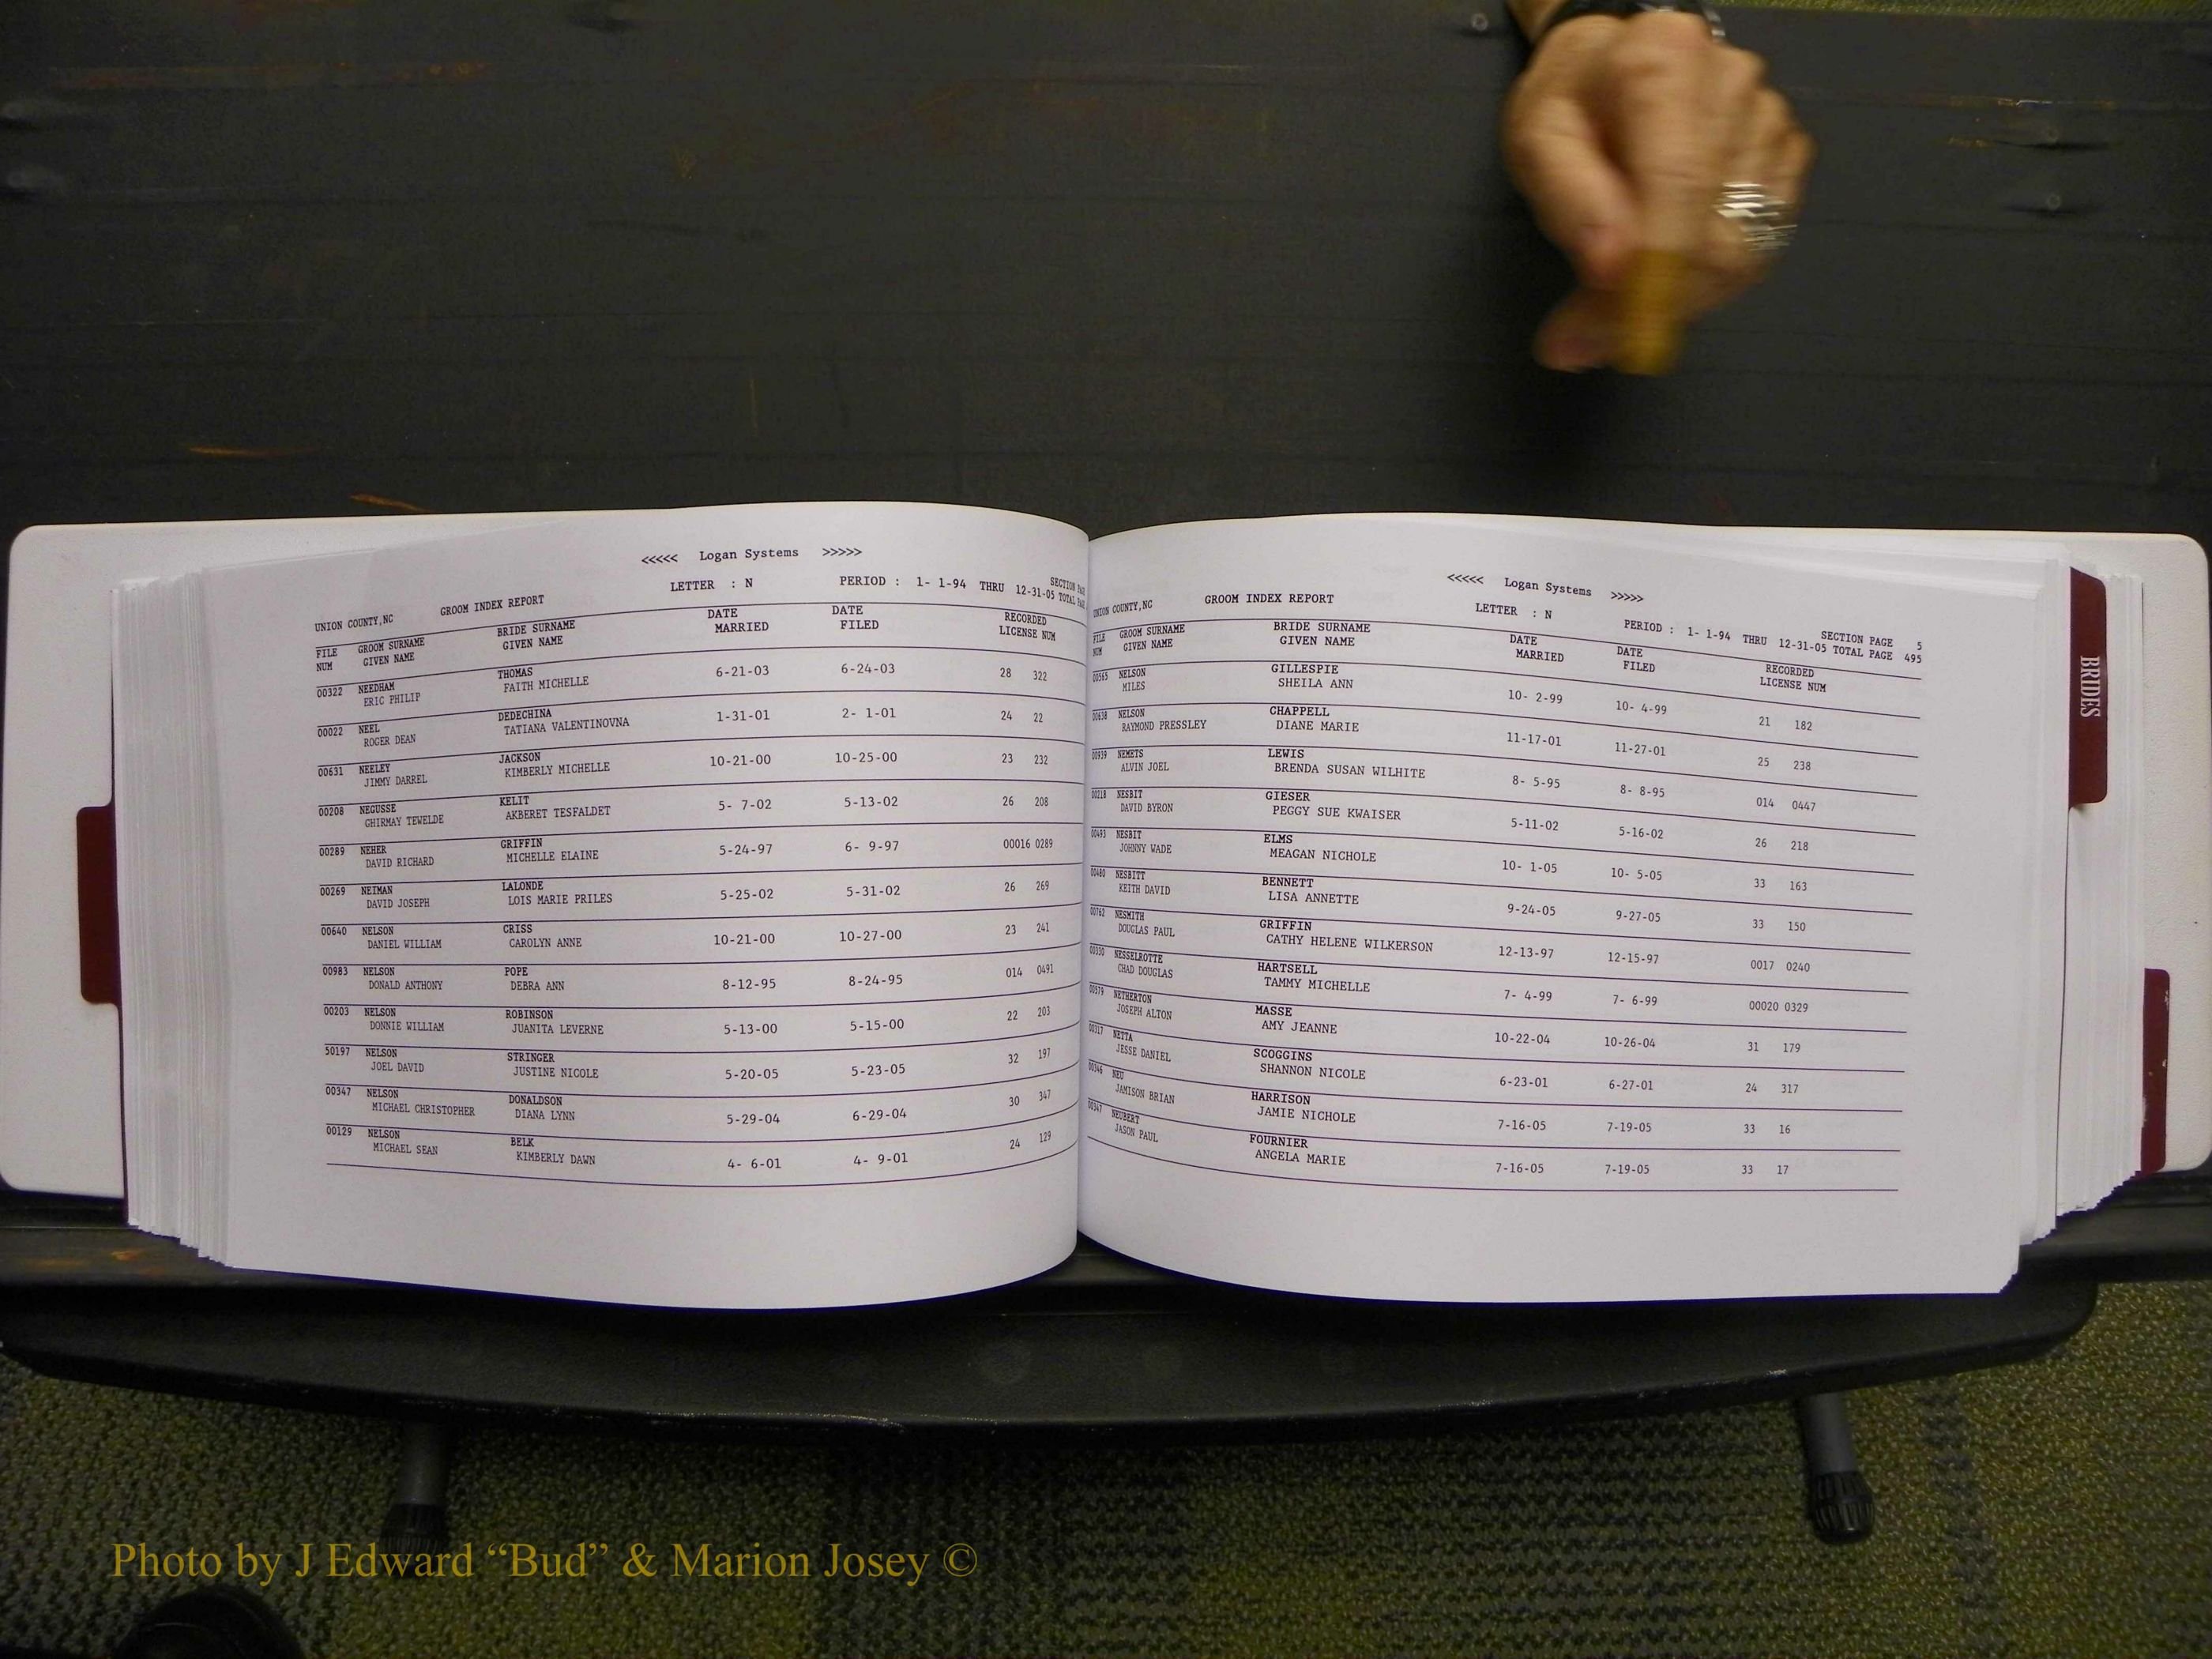 <<<<< Logan Systems >>>>>
UNION COUNTY,NC GROOM INDEX REPORT LETTER : N PERIOD : 1- 1-94 THRU 12-31-05 SECTION TOTAL
FILE GROOM SURNAME BRIDE SURNAME DATE DATE RECORDED
NUM GIVEN NAME GIVEN NAME MARRIED FILED LICENSE NUM
00322 NEEDHAM THOMAS 6-21-03 6-24-03 28 322
ERIC PHILIP FAITH MICHELLE
00022 NEEL DEDECHINA 1-31-01 2- 1-01 24 22
ROGER DEAN TATIANA VALENTINOVNA
00631 NEELEY JACKSON 10-21-00 10-25-00 23 232
JIMMY DARREL KIMBERLY MICHELLE
00208 NEGUSSE KELIT 5- 7-02 5-13-02 26 208
GHIRMAY TEWELDE AKBERET TESFALDET
00289 NEHER GRIFFIN 5-24-97 6- 9-97 00016 0289
DAVID RICHARD MICHELLE ELAINE
00269 NEIMAN LALONDE 5-25-02 5-31-02 26 269
DAVID JOSEPH LOIS MARIE PRILES
00640 NELSON CRISS 10-21-00 10-27-00 23 241
DANIEL WILLIAM CAROLYN ANNE
00983 NELSON POPE 8-12-95 8-24-95 014 0491
DONALD ANTHONY DEBRA ANN
00203 NELSON ROBINSON 5-13-00 5-15-00 22 203
DONNIE WILLIAM JUANITA LEVERNE
50197 NELSON STRINGER 5-20-05 5-23-05 32 197
JOEL DAVID JUSTINE NICOLE
00347 NELSON DONALDSON 5-29-04 6-29-04 30 347
MICHAEL CHRISTOPHER DIANA LYNN
00129 NELSON BELK 4- 6-01 4- 9-01 24 129
MICHAEL SEAN KIMBERLY DAWN
<<<<< Logan Systems >>>>>
UNION COUNTY,NC GROOM INDEX REPORT LETTER : N PERIOD : 1- 1-94 THRU 12-31-05 SECTION PAGE 5
TOTAL PAGE 495
FILE GROOM SURNAME BRIDE SURNAME DATE DATE RECORDED
NUM GIVEN NAME GIVEN NAME MARRIED FILED LICENSE NUM
00565 NELSON GILLESPIE 10- 2-99 10- 4-99 21 182
MILES SHEILA ANN
00638 NELSON CHAPPELL 11-17-01 11-27-01 25 238
RAYMOND PRESSLEY DIANE MARIE
00939 NEMETS LEWIS 8- 5-95 8- 8-95 014 0447
ALVIN JOEL BRENDA SUSAN WILHITE
00218 NESBIT GIESER 5-11-02 5-16-02 26 218
DAVID BYRON PEGGY SUE KWAISER
00493 NESBIT ELMS 10- 1-05 10- 5-05 33 163
JOHNNY WADE MEAGAN NICHOLE
00480 NESBITT BENNETT 9-24-05 9-27-05 33 150
KEITH DAVID LISA ANNETTE
00762 NESMITH GRIFFIN 12-13-97 12-15-97 0017 0240
DOUGLAS PAUL CATHY HELENE WILKERSON
00330 NESSELROTTE HARTSELL 7- 4-99 7- 6-99 00020 0329
CHAD DOUGLAS TAMMY MICHELLE
00579 NETHERTON MASSE 10-22-04 10-26-04 31 179
JOSEPH ALTON AMY JEANNE
00317 NETTA SCOGGINS 6-23-01 6-27-01 24 317
JESSE DANIEL SHANNON NICOLE
00346 NEU HARRISON 7-16-05 7-19-05 33 16
JAMISON BRIAN JAMIE NICHOLE
00347 NEUBERT FOURNIER 7-16-05 7-19-05 33 17
JASON PAUL ANGELA MARIE
BRIDES
Photo by J Edward “Bud” & Marion Josey ©